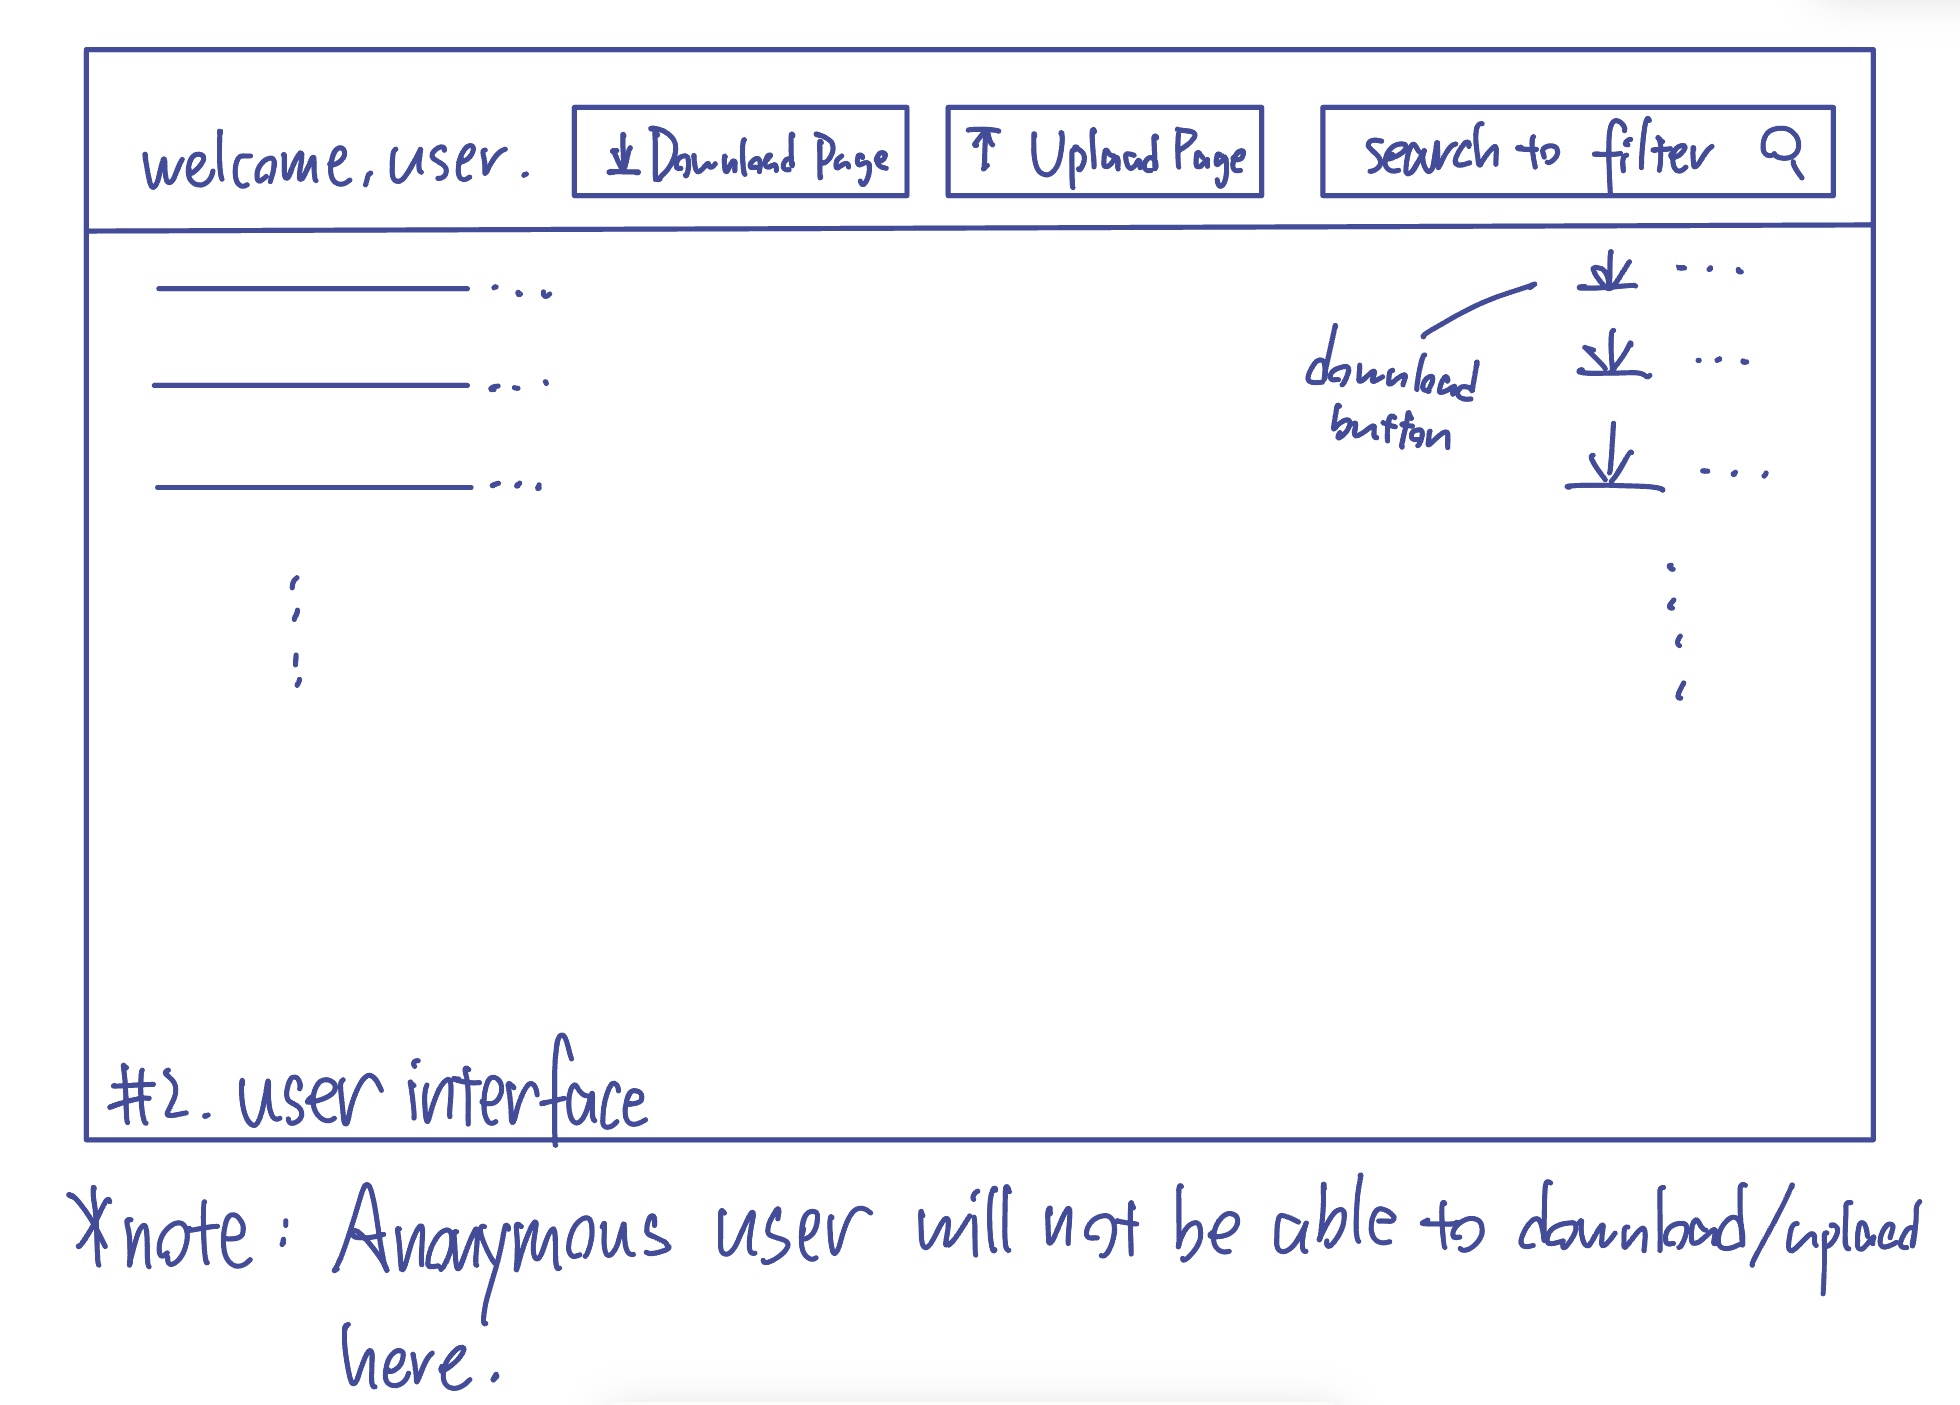 welcome, user.
Download Page
Upload Page
search to filter
download
button
#2. user interface
*note: Anonymous user will not be able to download/upload
here.